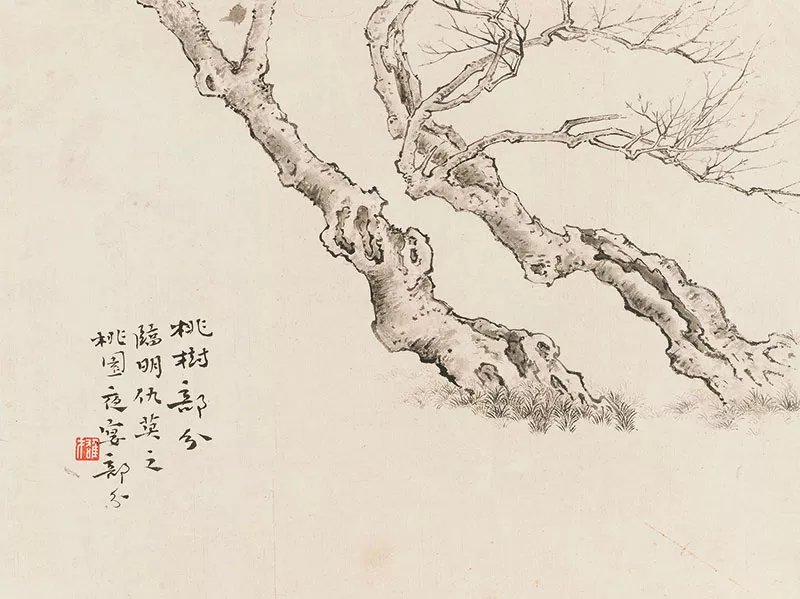 桃樹部分
臨明仇英之
桃園夜宴部分